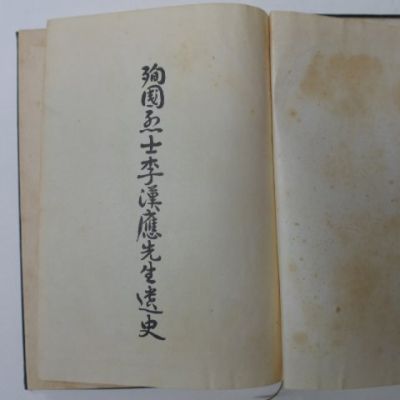 殉國烈士李漢應先生遺史